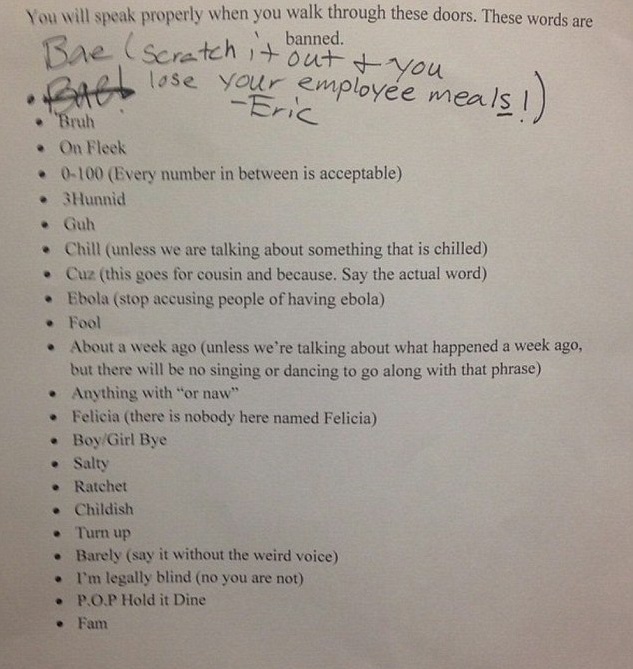 You will speak properly when you walk through these doors. These words are
banned.
Bae (scratch it out + you
lose your employee meals!)
-Eric
• Bae
• Bruh
• On Fleek
• 0-100 (Every number in between is acceptable)
• 3Hunnid
• Guh
• Chill (unless we are talking about something that is chilled)
• Cuz (this goes for cousin and because. Say the actual word)
• Ebola (stop accusing people of having ebola)
• Fool
• About a week ago (unless we’re talking about what happened a week ago,
but there will be no singing or dancing to go along with that phrase)
• Anything with “or naw”
• Felicia (there is nobody here named Felicia)
• Boy/Girl Bye
• Salty
• Ratchet
• Childish
• Turn up
• Barely (say it without the weird voice)
• I’m legally blind (no you are not)
• P.O.P Hold it Dine
• Fam